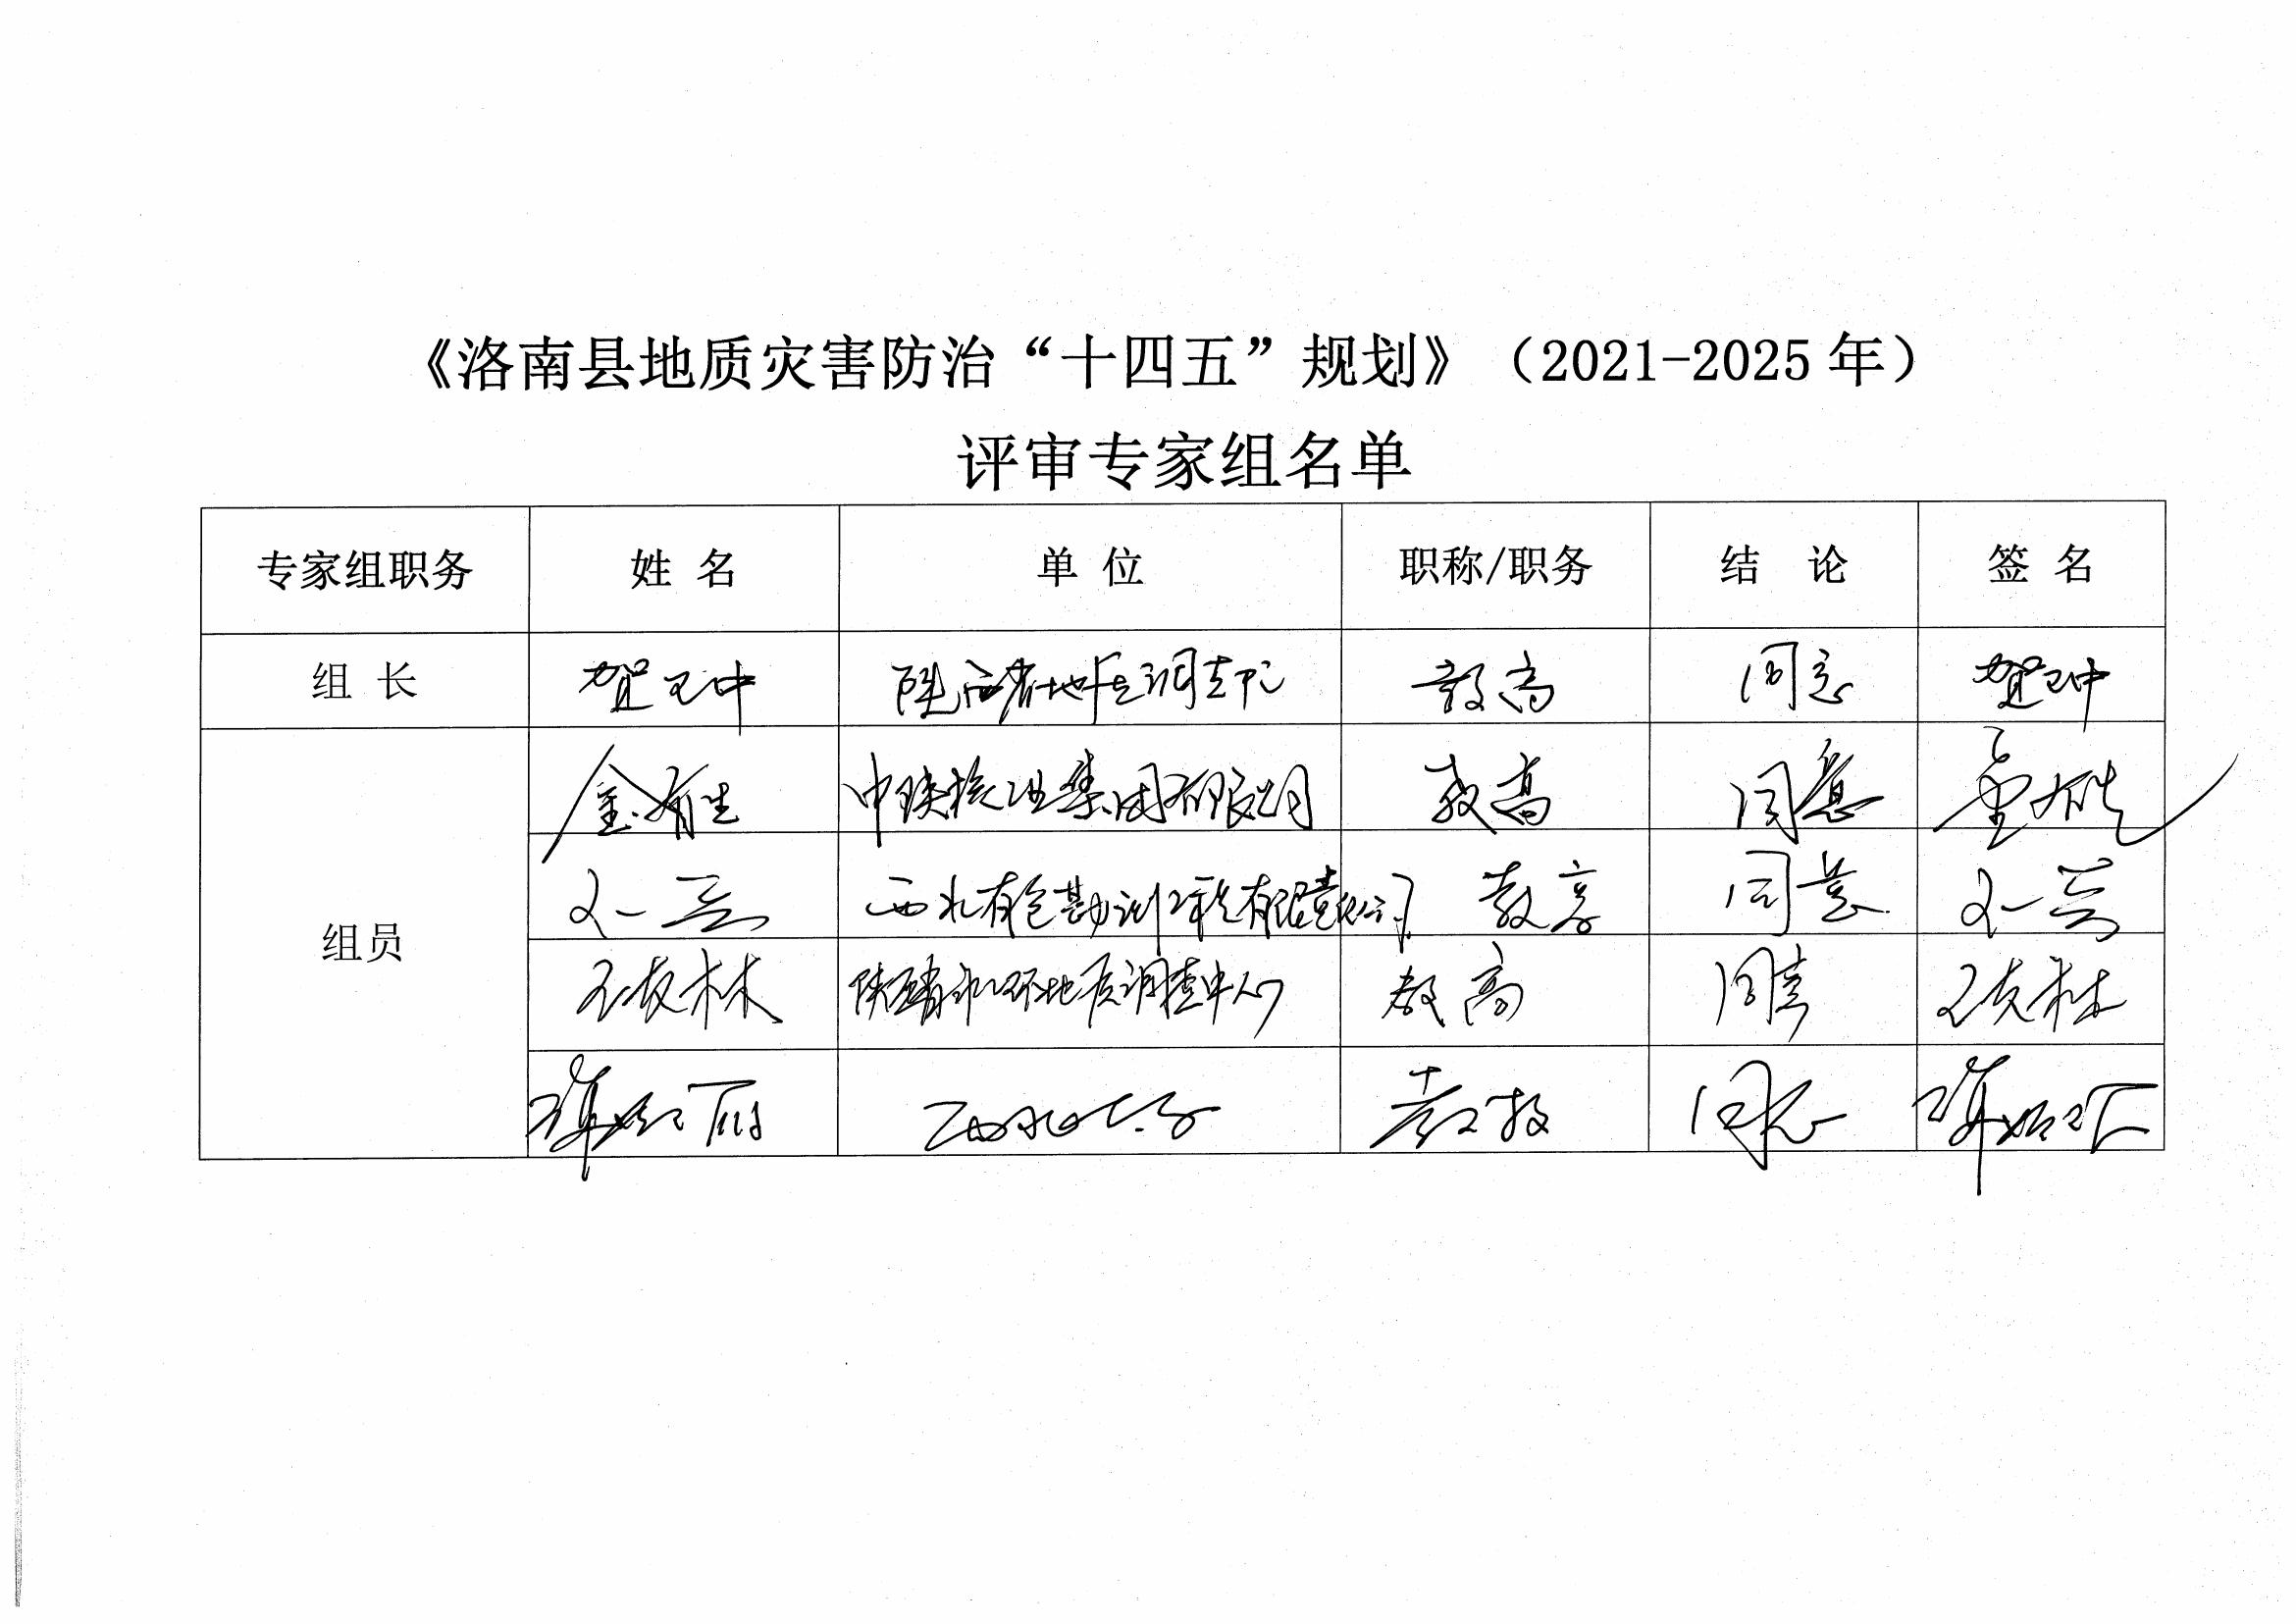 《洛南县地质灾害防治“十四五”规划》（2021-2025年）
评审专家组名单
专家组职务 姓 名 单 位 职称/职务 结 论 签 名
组 长 贺卫中 陕西省地质调查中心 教高 同意 贺卫中
金有生 中陕核工业集团有限公司 教高 同意 金有生
西北有色勘测工程有限责任公司 教高 同意
组员
友林 陕西省水工环地质调查中心 教高 同意 友林
丽 西北大学 教授 同意